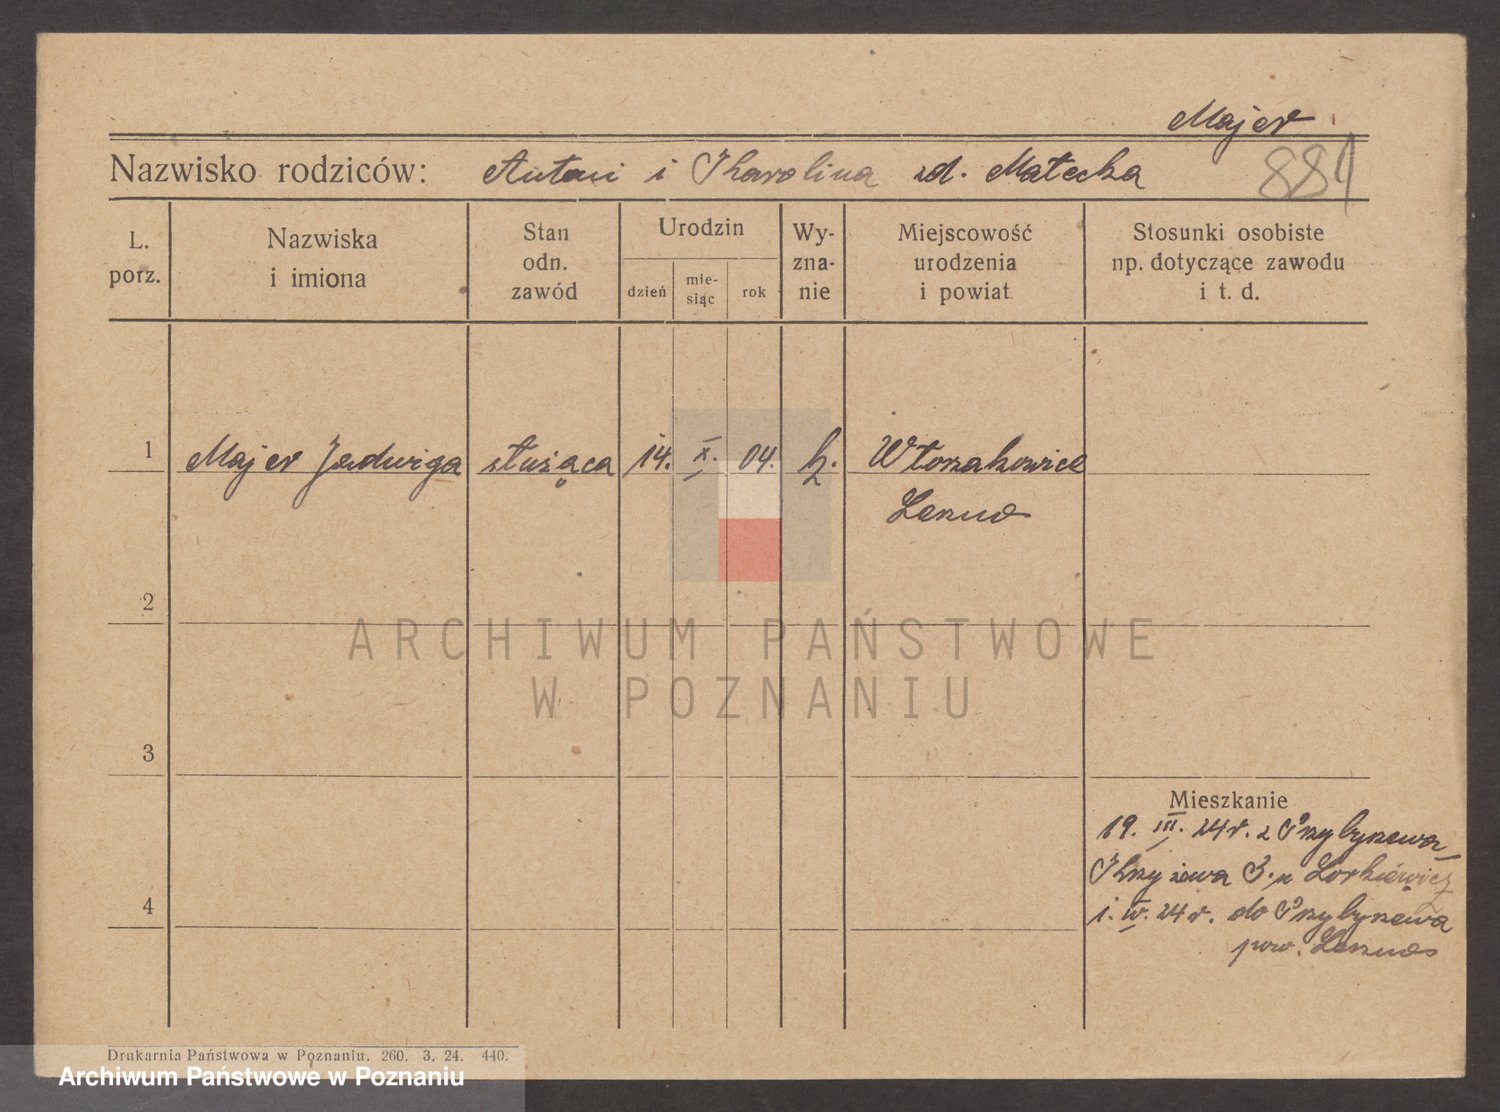 Majer
Nazwisko rodziców: Antoni i Karolina zd. Małecka
881
L. porz.
Nazwiska i imiona
Stan odn. zawód
Urodzin
dzień
mie-
siąc
rok
Wy-
zna-
nie
Miejscowość
urodzenia
i powiat
Stosunki osobiste
np. dotyczące zawodu
i t. d.
1 Majer Jadwiga służąca 14. X. 04. k. Włoszakowice
Leszno
2
ARCHIWUM PAŃSTWOWE
W POZNANIU
3
Mieszkanie
19. III. 24 r. z Przybyszewa
Krzyżowa 3. u Lorkiewicz
4
1. IV. 24 r. do Przybyszewa
pow. Leszno
Drukarnia Państwowa w Poznaniu. 260. 3. 24. 440.
Archiwum Państwowe w Poznaniu